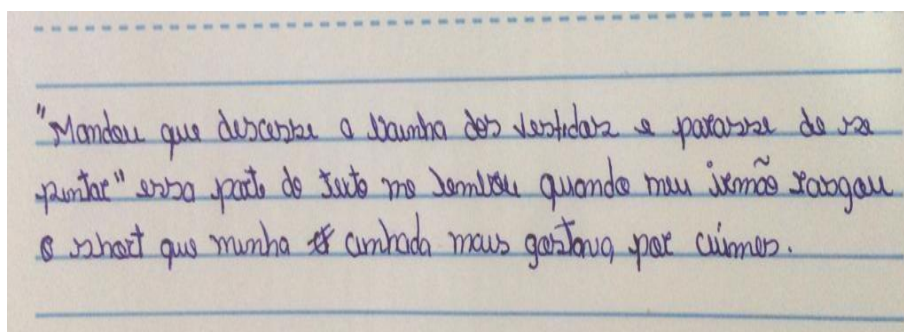 "Mandou que descesse a bainha dos vestidos e parasse de se
pintar" essa parte do texto me lembrou quando meu irmão rasgou
o short que minha cunhada mais gostava, por ciúmes.